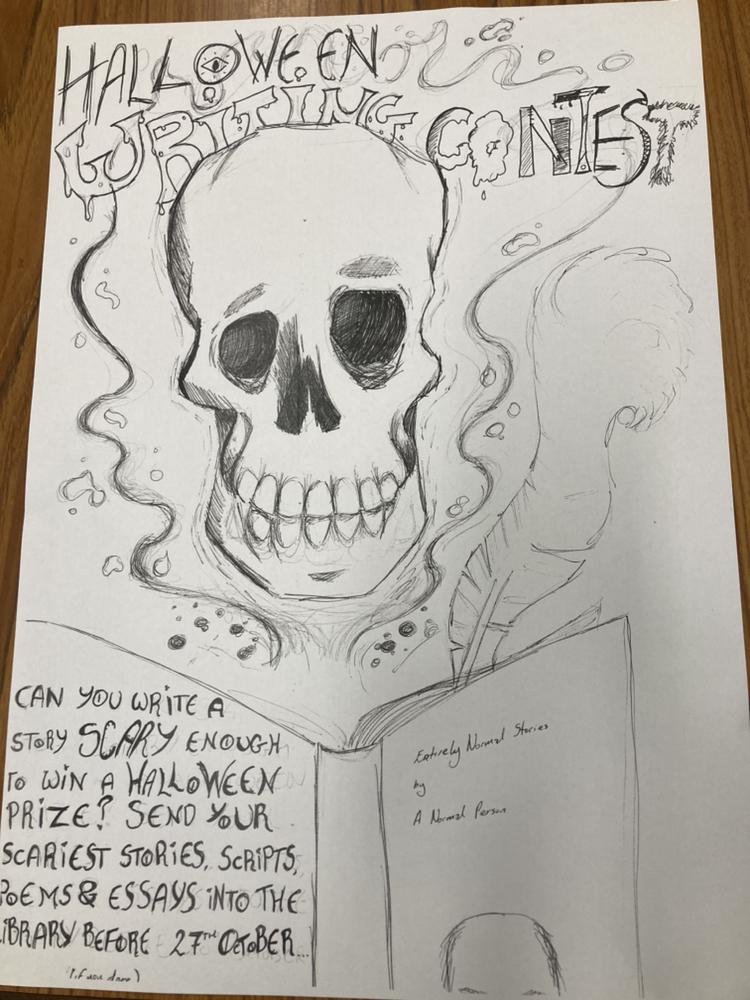 HALLOWEEN
WRITING CONTEST
CAN YOU WRITE A
STORY SCARY ENOUGH
TO WIN A HALLOWEEN
PRIZE? SEND YOUR
SCARIEST STORIES, SCRIPTS,
POEMS & ESSAYS INTO THE
LIBRARY BEFORE 27TH OCTOBER...
(if you dare)
Entirely Normal Stories
by
A Normal Person